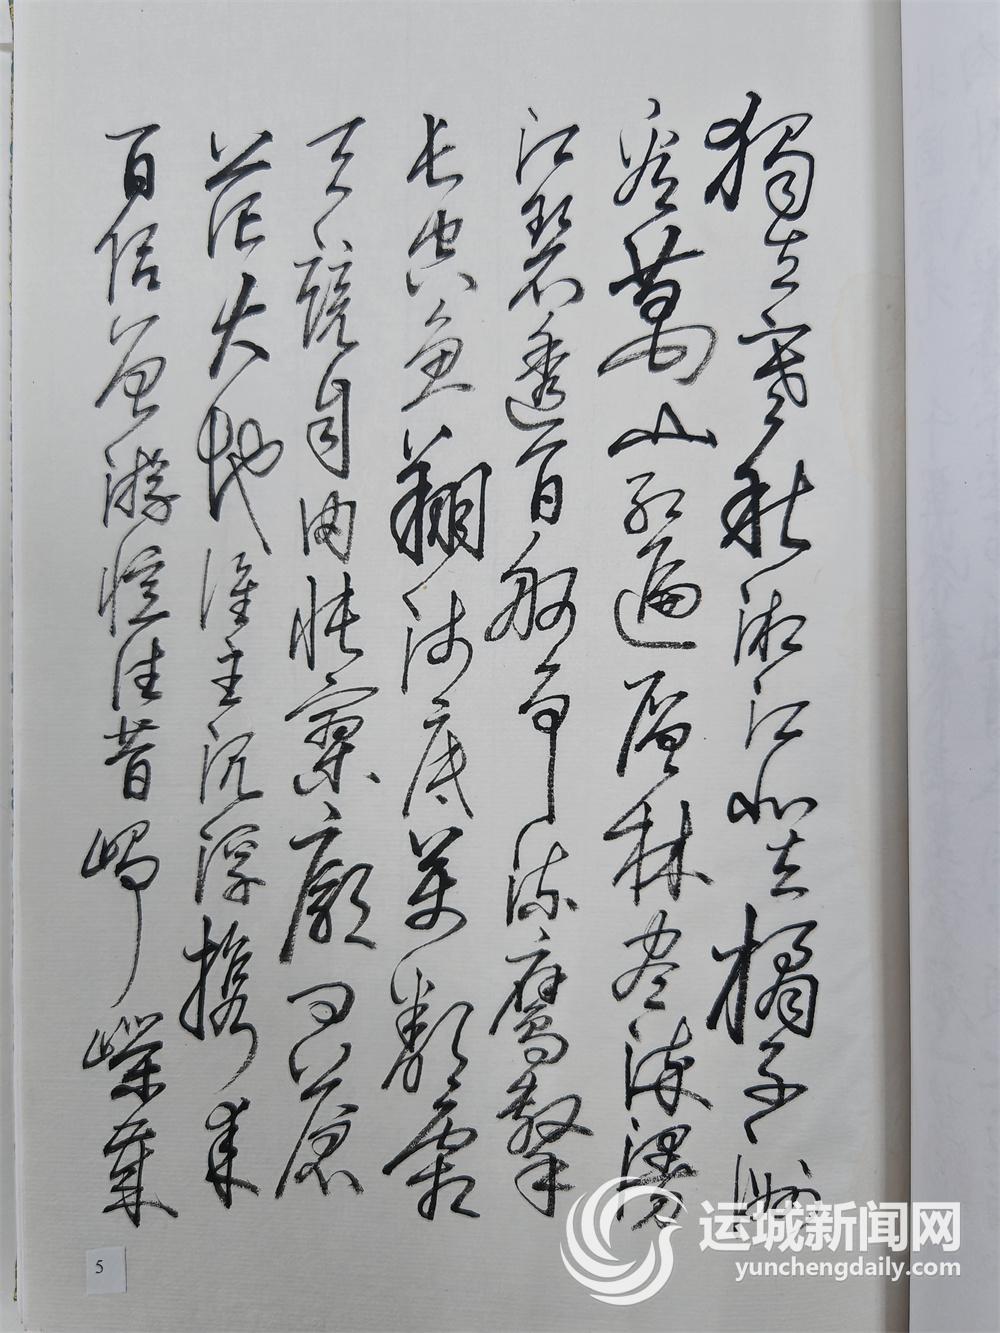 獨立寒秋湘江北去橘子洲
看萬山红遍层林尽染漫
江碧透百舸争流鷹擊
长空鱼翔浅底萬類霜
天競自由悵寥廓问蒼
茫大地谁主沉浮携来
百侣曾游忆往昔峥嵘歲
5
运城新闻网
yunchengdaily.com